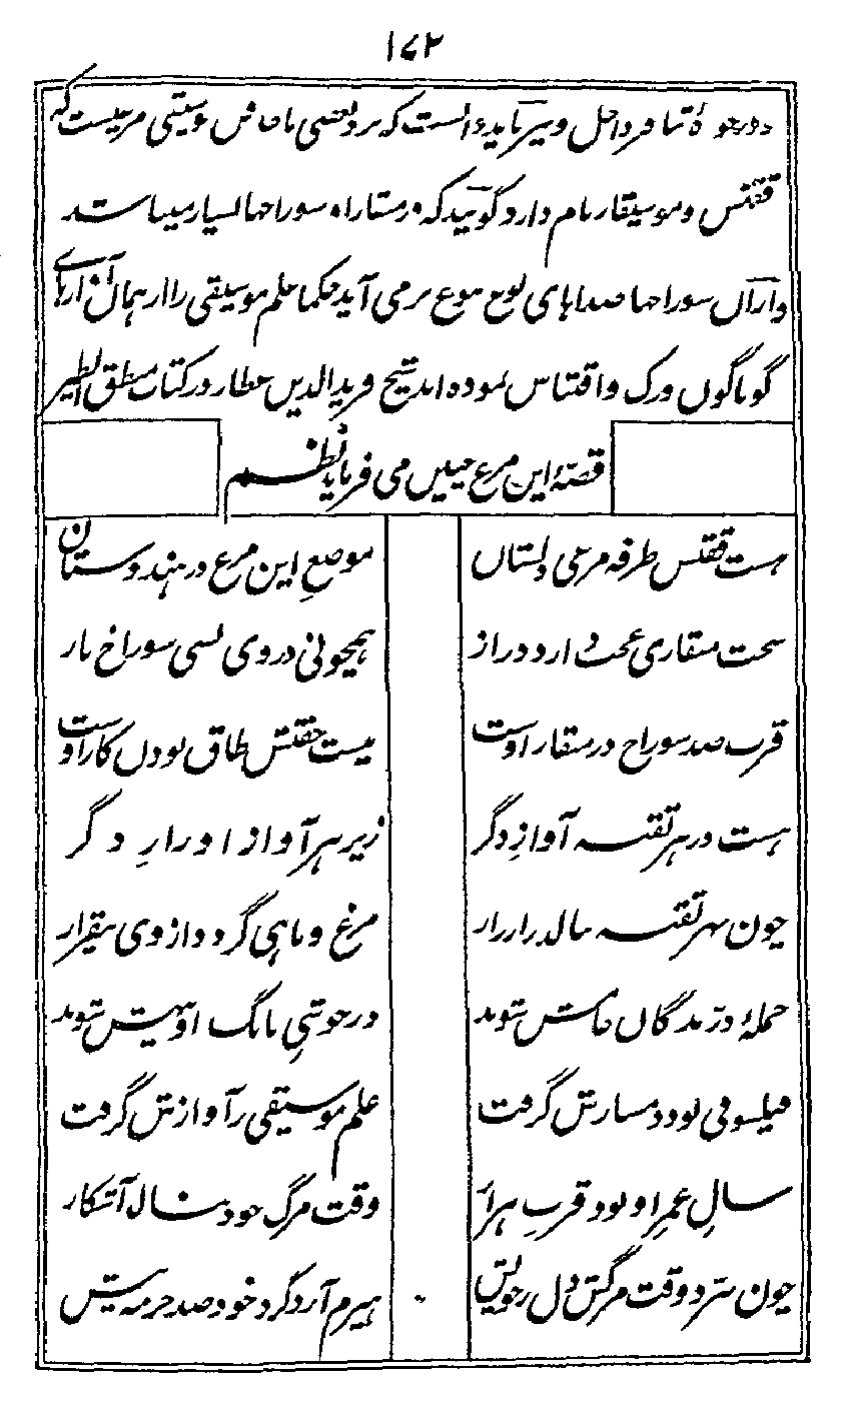 ۱۷۲
و میر باید دانست که نزد بعضی موسیقی مرغیست که
ققنس و موسیقار نام دارد گویند که در منقار او سوراخها بسیار میباشد
و از آن سوراخها صداهای نوع نوع بر می آید حکما علم موسیقی را از همان آوازهای
گوناگون درک و اقتباس نموده اند شیخ فریدالدین عطار در کتاب منطق الطیر
قصهٔ این مرغ چنین می فرماید نظم
هست ققنس طرفه مرغی دلستان موضع این مرغ در هندوستان
سخت منقاری عجب دارد دراز همچونی در وی بسی سوراخ باز
قرب صد سوراخ در منقار اوست نیست جفتش طاق بودن کار اوست
هست در هر ثقبه آواز دگر زیر هر آواز او راز دگر
چون بهر ثقبه بنالد زار زار مرغ و ماهی گردد از وی بیقرار
جملهٔ درندگان خامش شوند در خوشی بانگ او بیهش شوند
فیلسوفی بود دمسازش گرفت علم موسیقی ز آوازش گرفت
سال عمر او بود قرب هزار وقت مرگ خود بداند آشکار
چون ببرد وقت مرگش دل ز خویش هیزم آرد گرد خود صد حزمه بیش